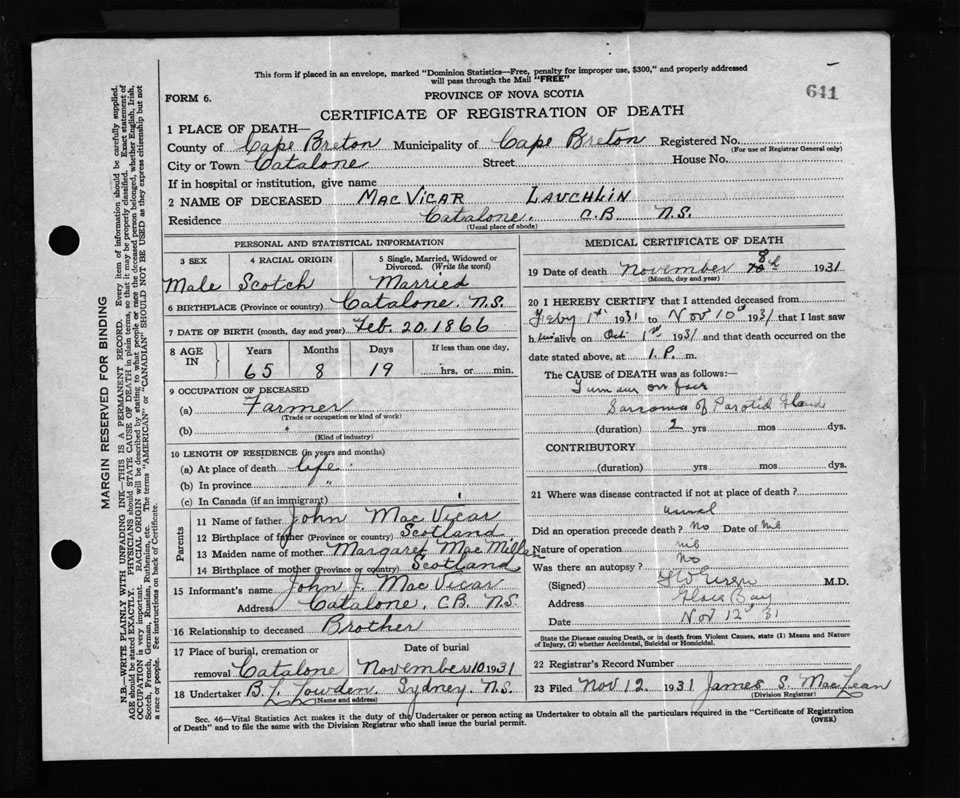 This form if placed in an envelope, marked "Dominion Statistics—Free, penalty for improper use, $300," and properly addressed
will pass through the Mail "FREE"
641
FORM 6.
PROVINCE OF NOVA SCOTIA
CERTIFICATE OF REGISTRATION OF DEATH
1 PLACE OF DEATH—
County of Cape Breton Municipality of Cape Breton Registered No.
(For use of Registrar General only)
City or Town Catalone Street House No.
If in hospital or institution, give name
2 NAME OF DECEASED MacVicar Lauchlin
Residence Catalone. C.B. N.S.
(Usual place of abode)
PERSONAL AND STATISTICAL INFORMATION
3 SEX
4 RACIAL ORIGIN
5 Single, Married, Widowed or Divorced. (Write the word)
Male Scotch Married
6 BIRTHPLACE (Province or country) Catalone. N.S.
7 DATE OF BIRTH (month, day and year) Feb. 20. 1866
8 AGE IN
Years Months Days If less than one day,
65 8 19 hrs. or min.
9 OCCUPATION OF DECEASED
(a) Farmer
(Trade or occupation or kind of work)
(b)
(Kind of industry)
10 LENGTH OF RESIDENCE (in years and months)
(a) At place of death life.
(b) In province "
(c) In Canada (if an immigrant)
Parents
11 Name of father John MacVicar
12 Birthplace of father (Province or country) Scotland
13 Maiden name of mother Margaret MacMillan
14 Birthplace of mother (Province or country) Scotland
15 Informant's name John J. MacVicar
Address Catalone, C.B. N.S.
16 Relationship to deceased Brother
17 Place of burial, cremation or Date of burial
removal Catalone November 10. 1931
18 Undertaker B. L. Lowden. Sydney. N.S.
(Name and address)
MEDICAL CERTIFICATE OF DEATH
19 Date of death November 8th 1931
(Month, day and year)
20 I HEREBY CERTIFY that I attended deceased from
Feby 1st 1931 to Nov 10 1931 that I last saw
h him alive on Oct 1st 1931 and that death occurred on the
date stated above, at 1. P. m.
The CAUSE OF DEATH was as follows:—
Tumour on face
Sarcoma of Parotid Gland
(duration) 2 yrs mos dys.
CONTRIBUTORY
(duration) yrs mos dys.
21 Where was disease contracted if not at place of death?
usual
Did an operation precede death? No Date of Nil
Nature of operation nil
Was there an autopsy? No
(Signed) M.D.
Address Glace Bay
Date Nov 12 31
State the Disease causing Death, or in death from Violent Causes, state (1) Means and Nature
of Injury, (2) whether Accidental, Suicidal or Homicidal.
22 Registrar's Record Number
23 Filed Nov 12. 1931 James S. MacLean
(Division Registrar)
Sec. 46—Vital Statistics Act makes it the duty of the Undertaker or person acting as Undertaker to obtain all the particulars required in the "Certificate of Registration
of Death" and to file the same with the Division Registrar who shall issue the burial permit.
(OVER)
MARGIN RESERVED FOR BINDING
N.B.—WRITE PLAINLY WITH UNFADING INK—THIS IS A PERMANENT RECORD. Every item of information should be carefully supplied.
AGE should be stated EXACTLY. PHYSICIANS should STATE CAUSE OF DEATH in plain terms, so that it may be properly classified. Exact statement of
OCCUPATION is very important. RACIAL ORIGIN will be described by stating to what people or race the deceased person belonged, whether English, Irish,
Scotch, French, German, Russian, Ruthenian, etc. The terms "AMERICAN" or "CANADIAN" SHOULD NOT BE USED as they express citizenship but not
a race or people. See instructions on back of Certificate.